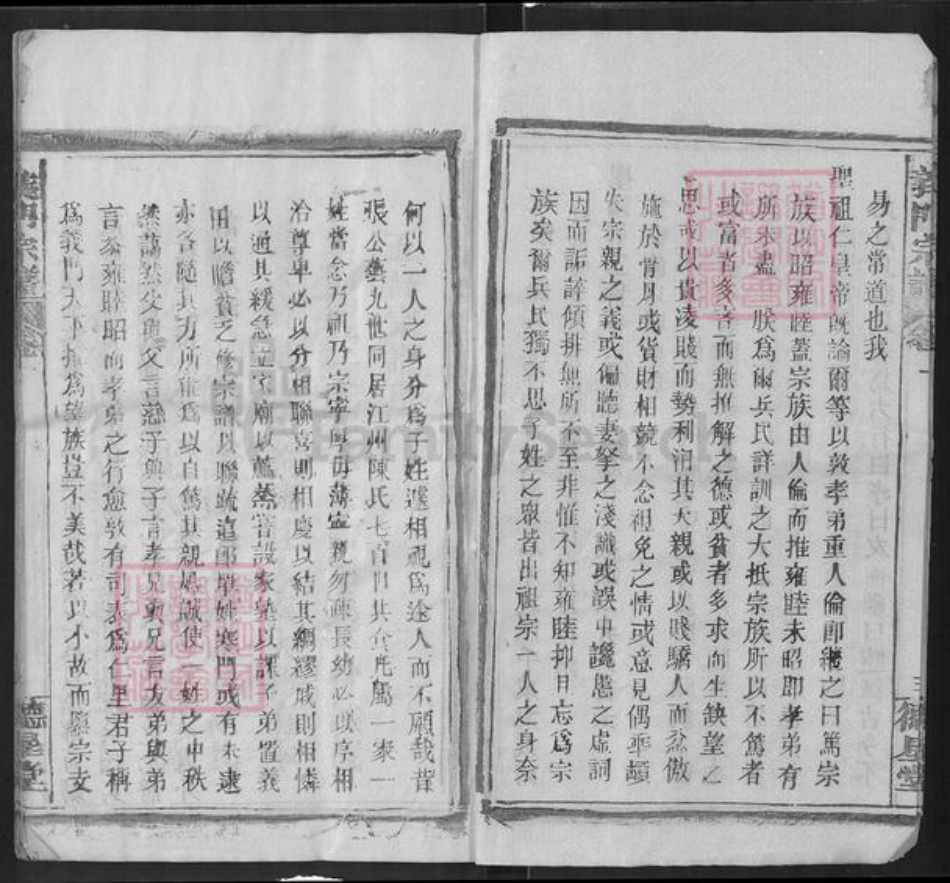 易之常道也我
聖祖仁皇帝既諭爾等以敦孝弟重人倫即繼之曰篤宗
族以昭雍睦蓋宗族由人倫而推雍睦未昭即孝弟有
所未盡 朕為爾兵民詳訓之大抵宗族所以不篤者
或富者多吝而無推解之德或貧者多求而生缺望之
思或以貴凌賤而勢利汨其天親或以賤驕人而忿傲
施於骨肉或貨財相競不念祖免之情或意見偶乖頓
失宗親之義或偏聽妻孥之淺識或誤中讒慝之虛詞
因而詬誶傾排無所不至非惟不知雍睦抑且忘為宗
族矣爾兵民獨不思子姓之眾皆出祖宗一人之身奈
何以一人之身分為子姓遽相視為途人而不顧哉昔
張公藝九世同居江州陳氏七百口共食凡屬一家一
姓當念乃祖乃宗寧厚毋薄寧親勿疎長幼必以序相
洽尊卑必以分相聯喜則相慶以結其綢繆戚則相憐
以通其緩急立家廟以薦蒸嘗設家塾以課子弟置義
田以贍貧乏修宗譜以聯疏遠即單姓寒門或有未逮
亦各隨其力所能為以自篤其親屬誠使一姓之中秩
然藹然父與父言慈子與子言孝兄與兄言友弟與弟
言恭雍睦昭而孝弟之行愈敦有司表為仁里君子稱
為義門天下推為望族豈不美哉若以小故而隳宗支
義門宗譜
卷
一
德星堂
義門宗譜
卷
德星堂
FamilySearch